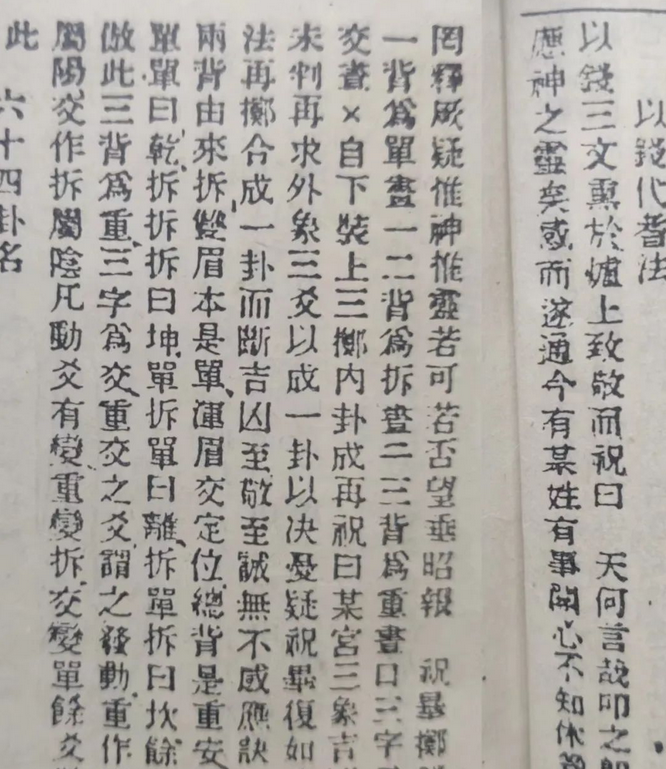 以錢代蓍法
以錢三文熏於爐上致敬而祝曰 天何言哉叩之即
應神之靈矣感而遂通今有某姓有事關心不知休
罔釋厥疑惟神惟靈若可若否望垂昭報 祝畢擲
一背為單畫一二背為拆畫二三背為重畫口三字
交畫×自下裝上三擲內卦成再祝曰某宮三象吉
未判再求外象三爻以成一卦以决憂疑祝畢復如
法再擲合成一卦而斷吉凶至敬至誠無不感應訣
兩背由來拆雙眉本是單渾眉交定位總背是重安
單單曰乾拆拆拆曰坤單拆單曰離拆單拆曰坎餘
倣此三背為重三字為交重交之爻謂之發動重作
屬陽交作拆屬陰凡動爻有變重變拆交變單餘爻
此 六十四卦名